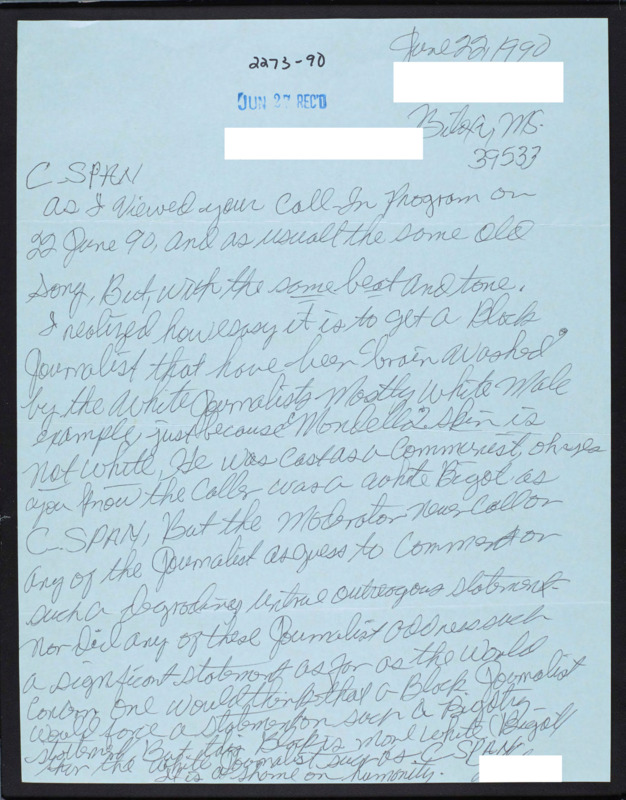 June 22, 1990
2273-90
JUN 27 REC'D
Biloxy, MS.
39533
C-SPAN
as I viewed your Call-In Program on
22 June 90, and as usuall the same old
song, But, with the same beat and tone.
I realized how easy it is to get a Black
Journalist that have been "brain washed"
by the white Journalists Mostly white Male
example, just because "Mondella" skin is
not white, He was cast as a Communist, oh yes
you know the Caller was a white Bigot as
C-SPAN, But the Moderator never call on
any of the Journalist as guess to Comment on
such a degrading untrue outreogous statement
nor Did any of these Journalist address such
a significant statement as far as the World
Concern one would think that a Black Journalist
would force a statement on such a Bigotry
statement But this Black is more white Bigot
than the white Journalist such as C-SPAN
It is a shame on humanity.